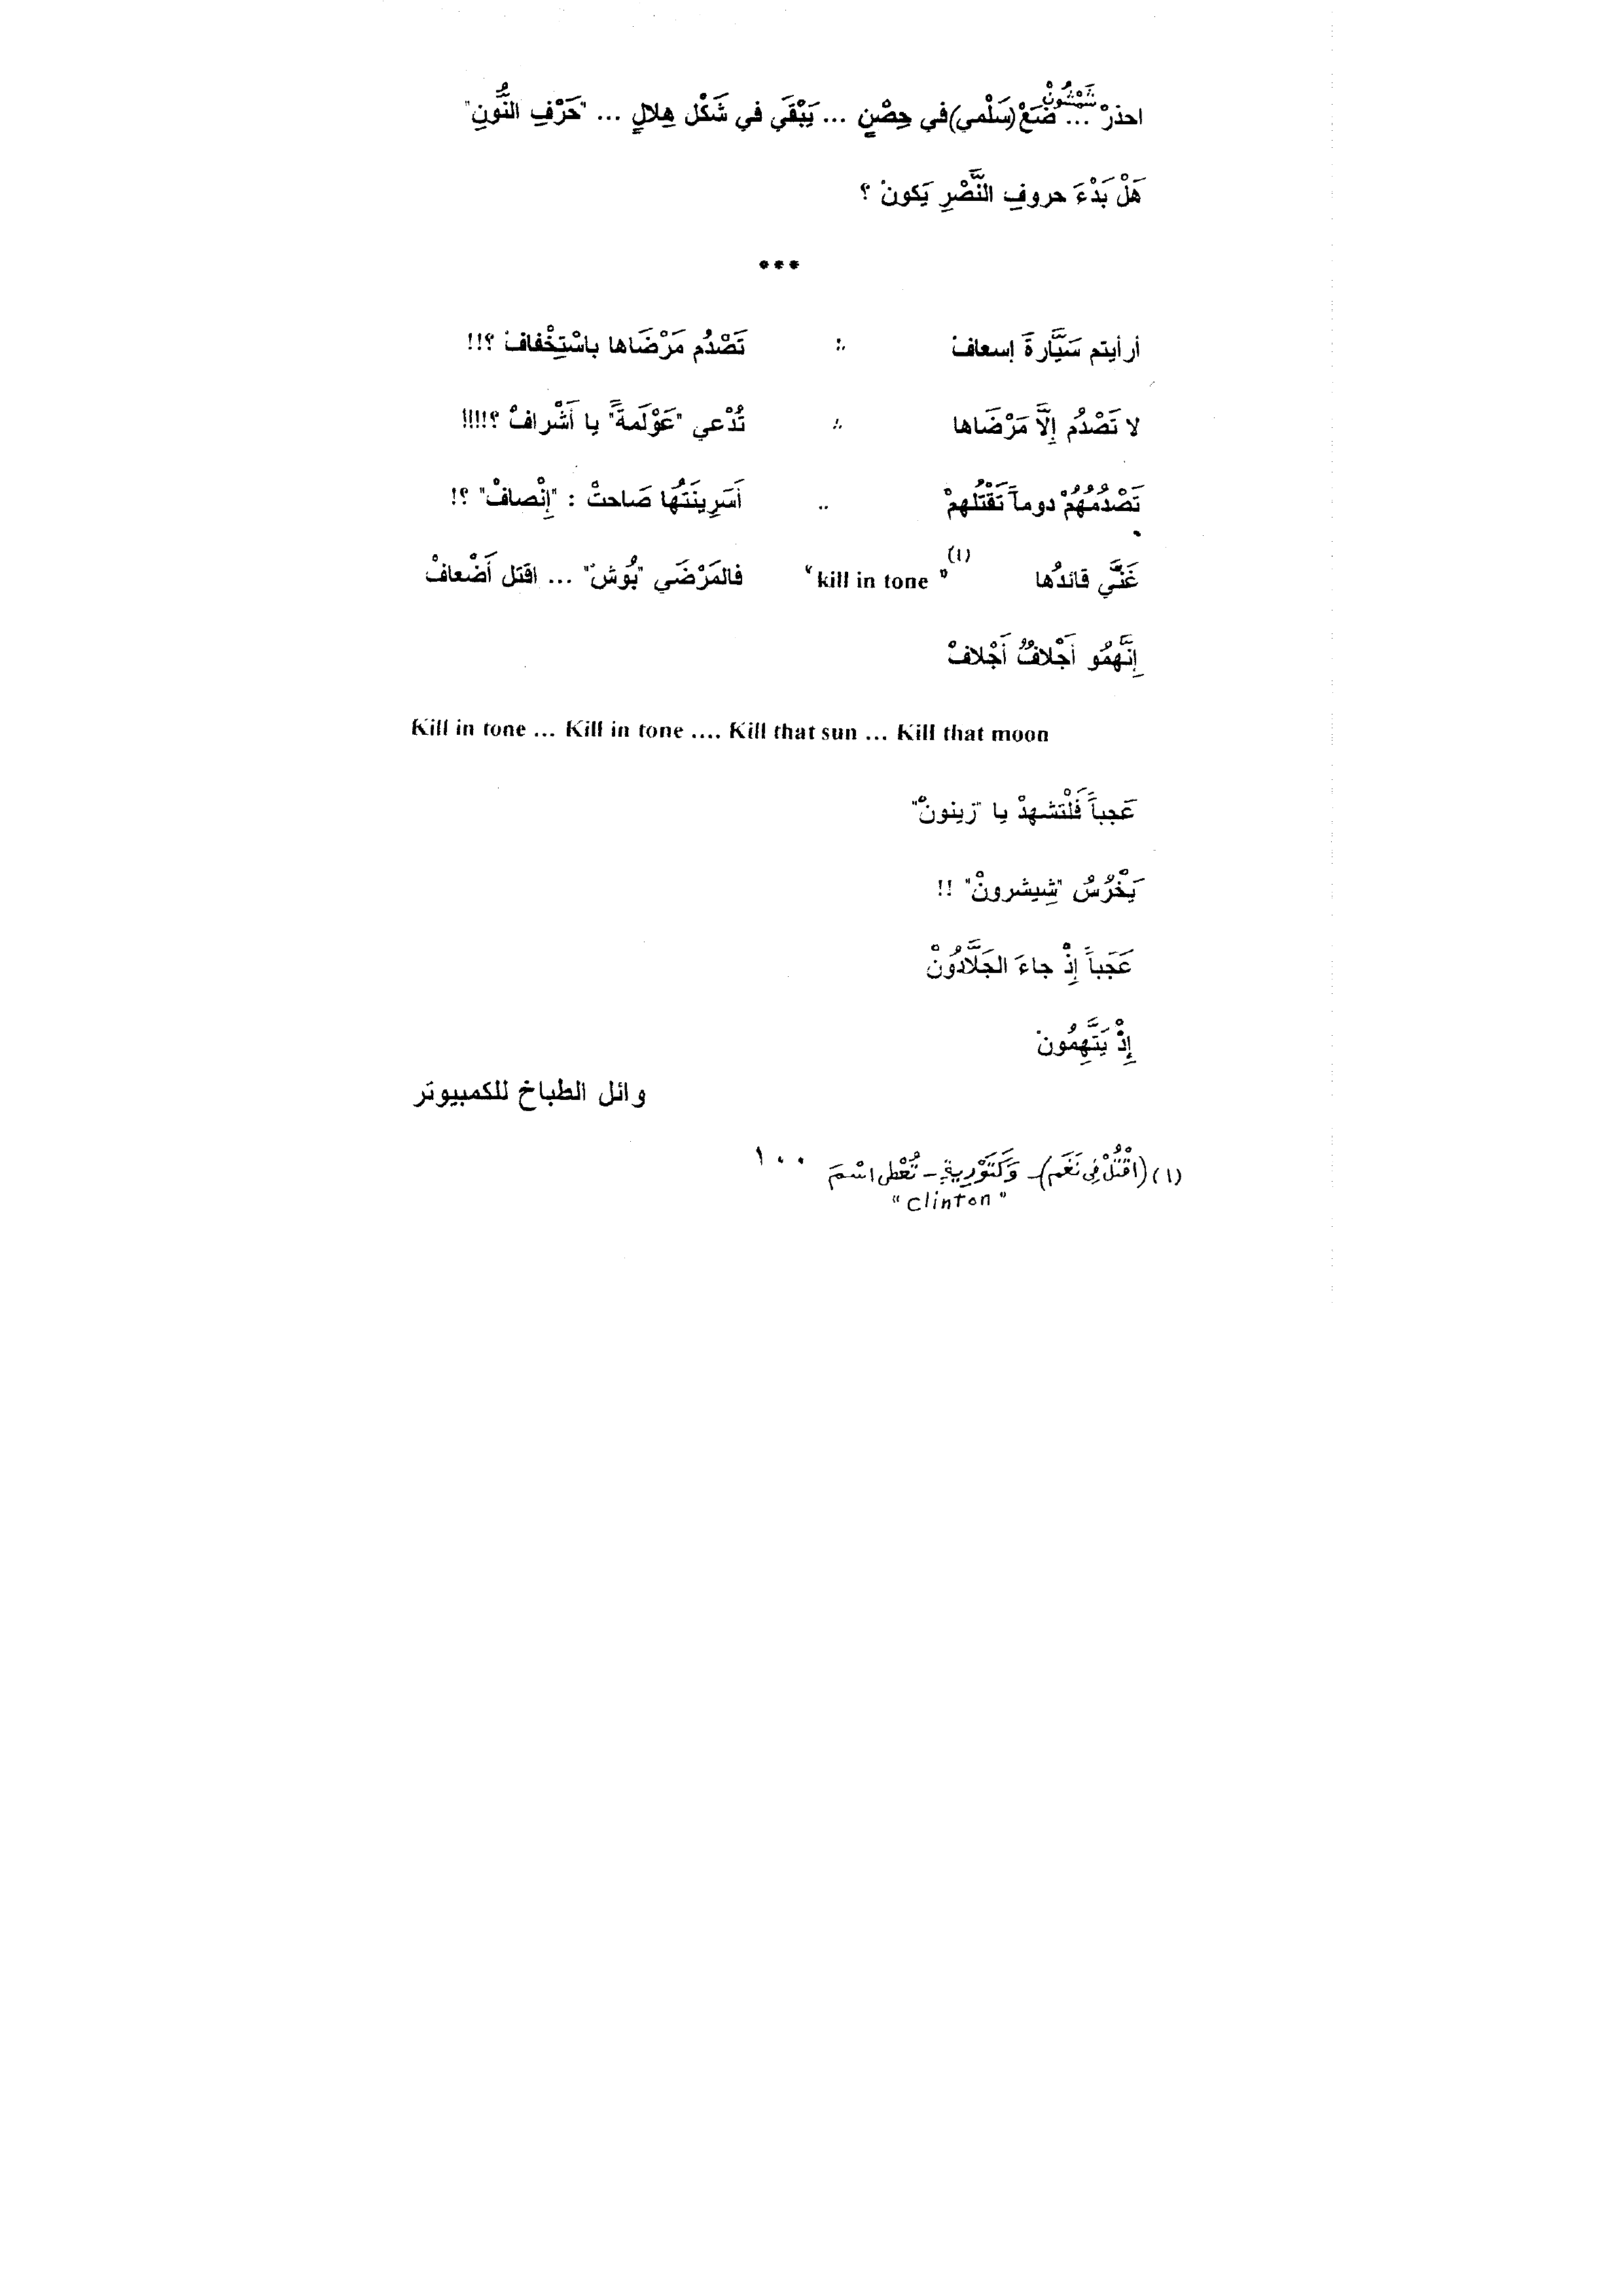 شَمْشُونْ
احذرْ ... ضَعْ (سَلْمي) في حِصْنٍ ... يَبْقَي في شَكْل هِلالٍ ... "حَرْفِ النُّونِ"
هَلْ بَدْءَ حروفِ النَّصْرِ يَكونْ ؟
***
أرأيتم سَيَّارةَ إسعافْ .: تَصْدُم مَرْضَاها باسْتِخْفافْ ؟!!
لا تَصْدُم إلَّا مَرْضَاها .: تُدْعي "عَوْلَمةً" يا أَشْرافْ ؟!!!!!
تَصْدُمُهُمْ دوماً تَقْتُلهمْ .. أَسَرِينَتُها صَاحتْ : "إِنْصافْ" ؟!
غَنَّي قائدُها "kill in tone" (١) فالمَرْضَي "بُوش" ... اقتل أَضْعافْ
إِنَّهمُو أَجْلافٌ أَجْلافْ
Kill in tone ... Kill in tone .... Kill that sun ... Kill that moon
عَجباً فَلْتشهدْ يا "زينونْ"
يَخْرُسُ "شِيشرونْ" !!
عَجَباً إِذْ جاءَ الجَلَّادُونْ
إِذْ يَتَّهِمُونْ
وائل الطباخ للكمبيوتر
(١) (اقْتُلْ فِي نَغَم) - وَكَتَوْرِيةٍ - تُعْطِي اسْمَ
"Clinton"
١٠٠